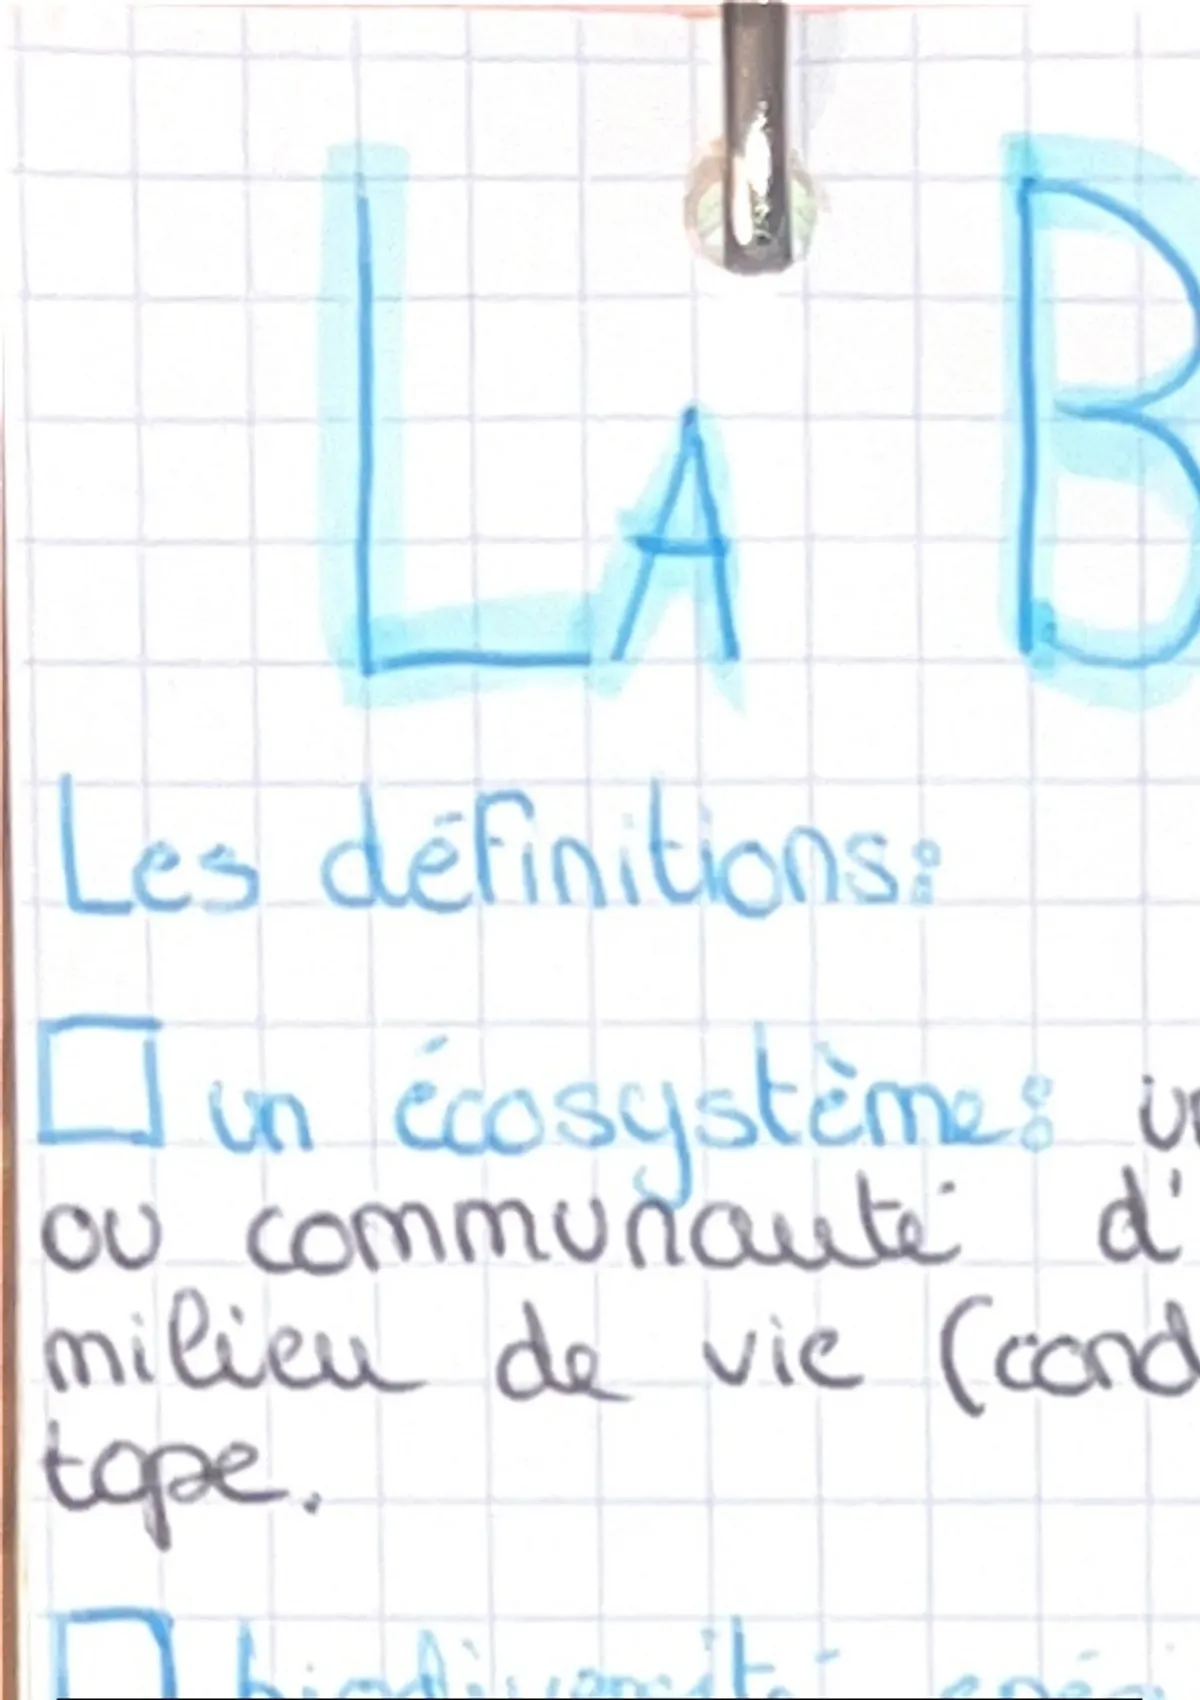 LA B
Les définitions:
un écosystème: un
ou communauté d'
milieu de vie (cond
tope.
biodiversité